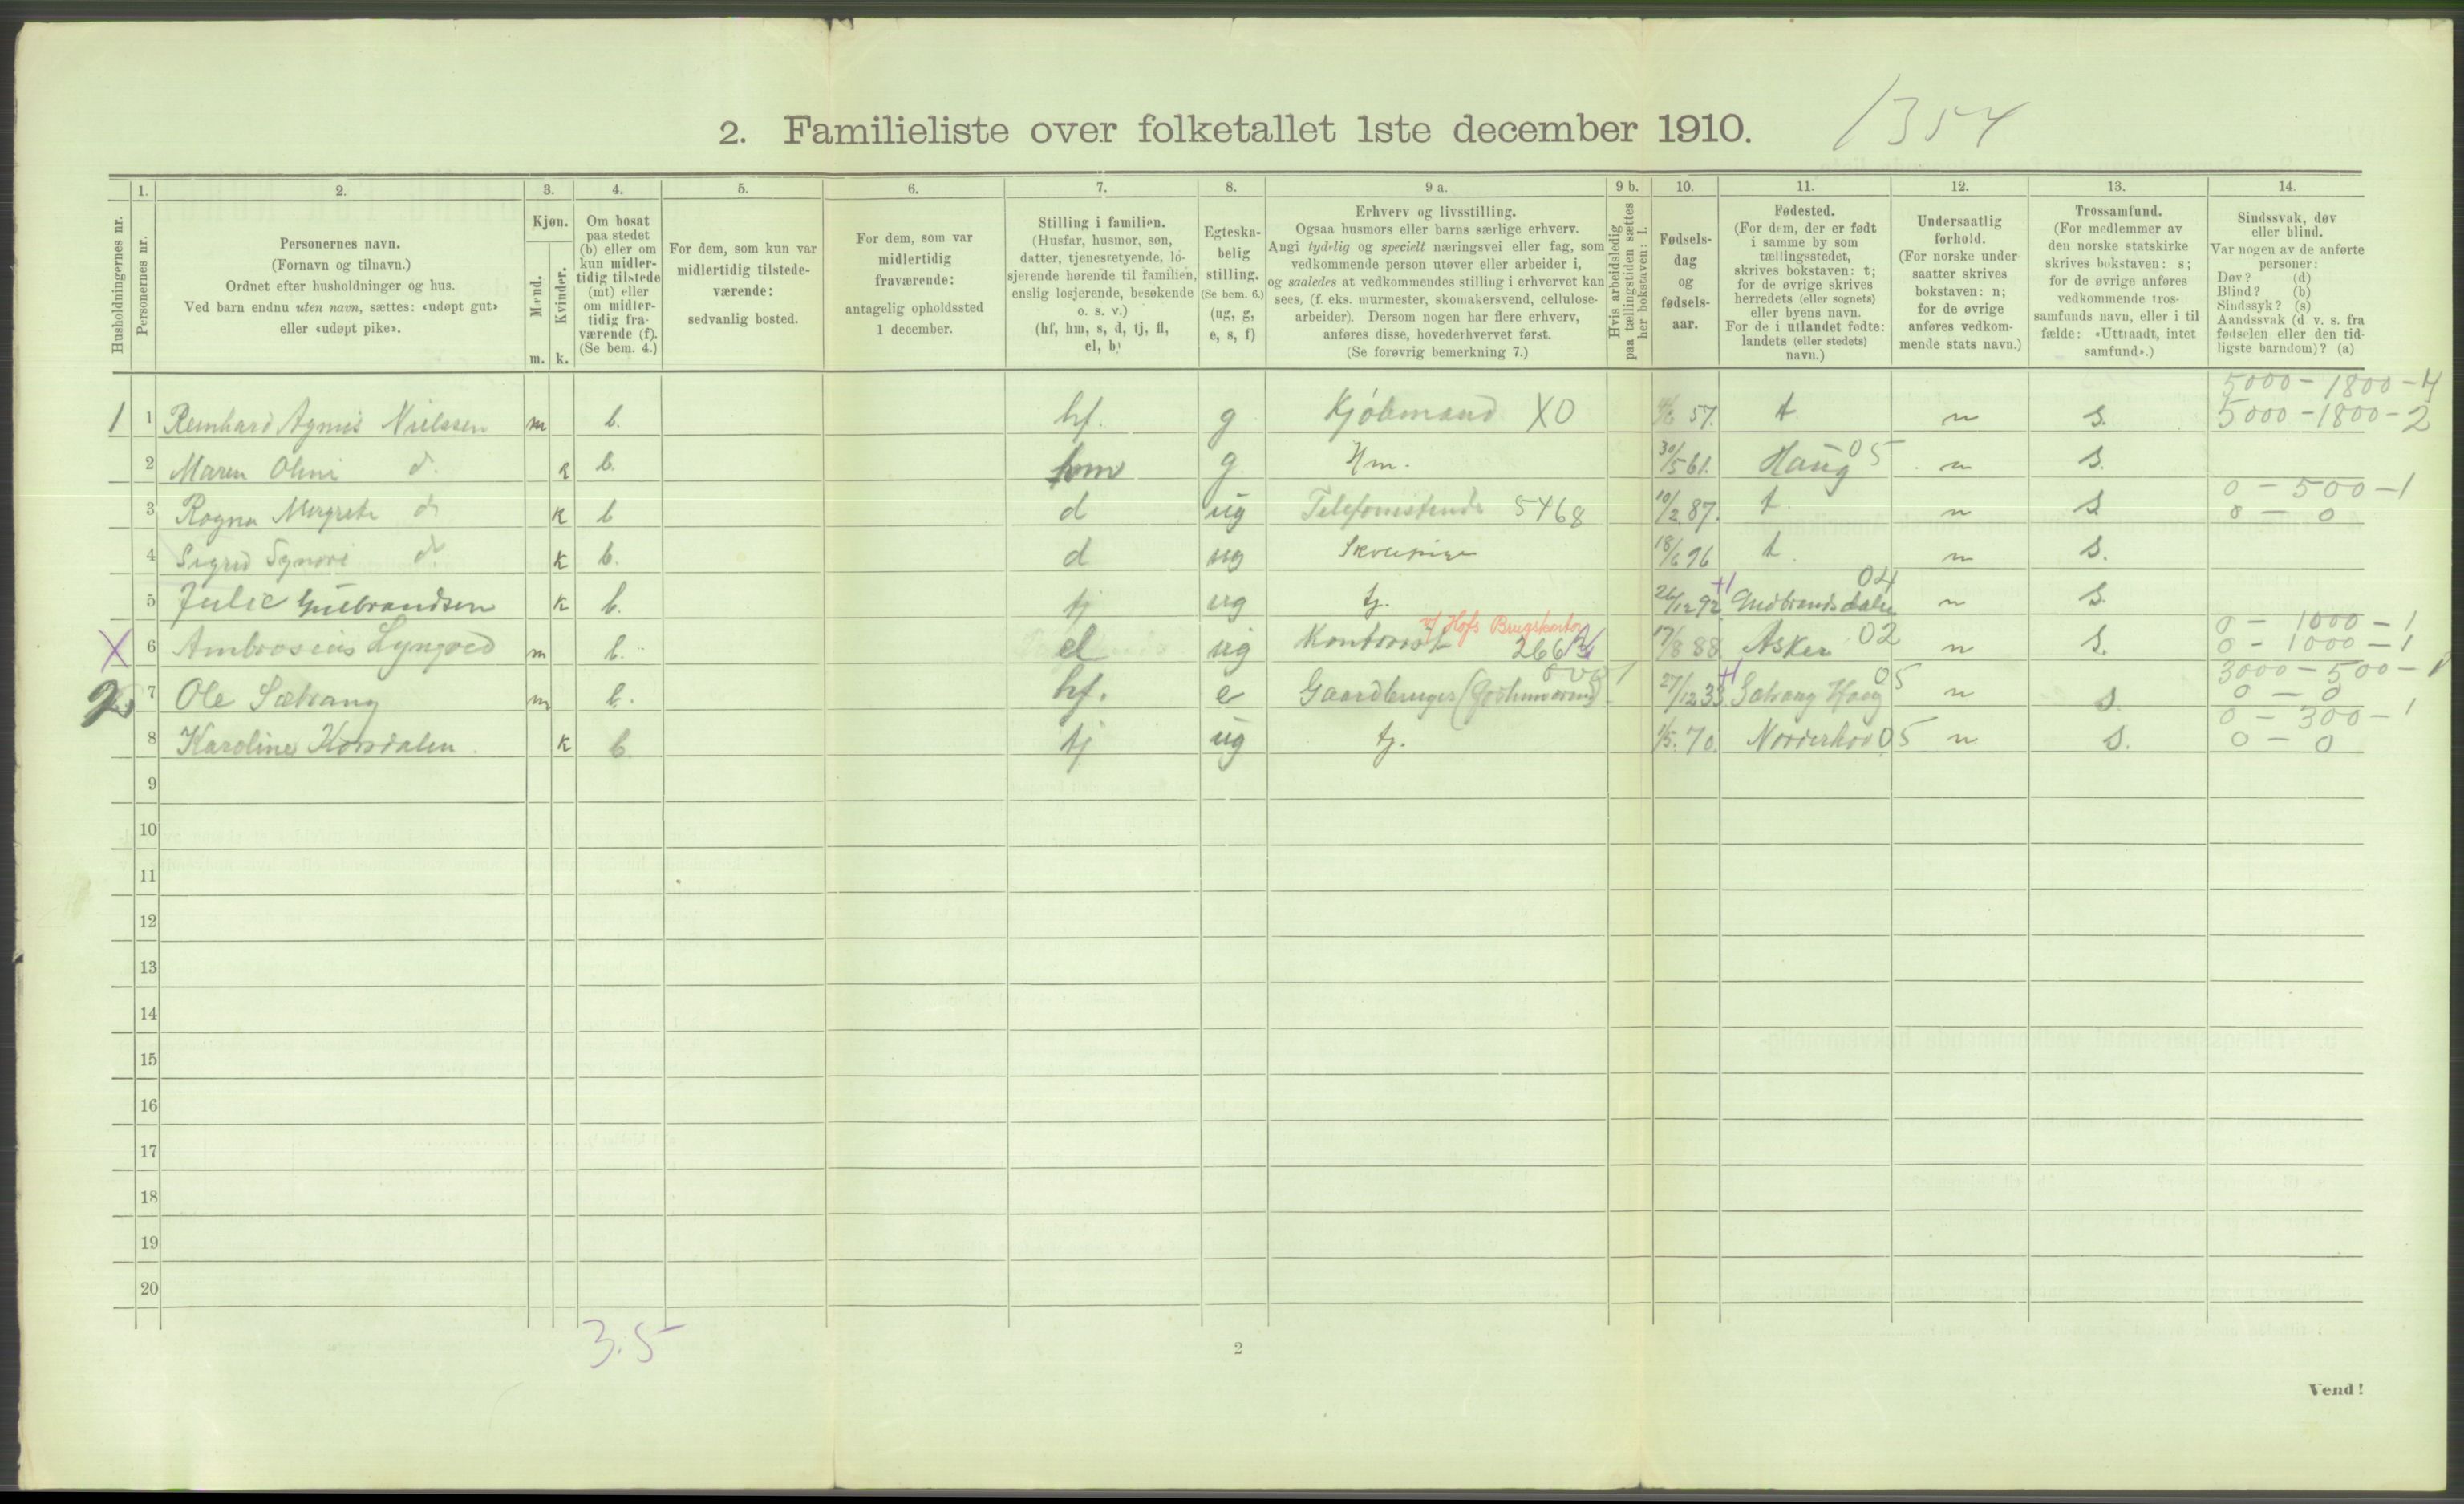 2. Familieliste over folketallet 1ste december 1910. 1354
Husholdningernes nr.
1. Personernes nr.
2. Personernes navn.
(Fornavn og tilnavn.)
Ordnet efter husholdninger og hus.
Ved barn endnu uten navn, sættes: «udøpt gut»
eller «udøpt pike».
3. Kjøn.
Mænd. m.
Kvinder. k.
4. Om bosat
paa stedet
(b) eller om
kun midler-
tidig tilstede
(mt) eller
om midler-
tidig fra-
værende (f).
(Se bem. 4.)
5. For dem, som kun var
midlertidig tilstede-
værende:
sedvanlig bosted.
6. For dem, som var
midlertidig
fraværende:
antagelig opholdssted
1 december.
7. Stilling i familien.
(Husfar, husmor, søn,
datter, tjenestetyende, lo-
sjerende hørende til familien,
enslig losjerende, besøkende
o. s. v.)
(hf, hm, s, d, tj, fl,
el, b)
8. Egteska-
belig
stilling.
(Se bem. 6.)
(ug, g,
e, s, f)
9 a. Erhverv og livsstilling.
Ogsaa husmors eller barns særlige erhverv.
Angi tydelig og specielt næringsvei eller fag, som
vedkommende person utøver eller arbeider i,
og saaledes at vedkommendes stilling i erhvervet kan
sees, (f. eks. murmester, skomakersvend, cellulose-
arbeider). Dersom nogen har flere erhverv,
anføres disse, hovederhvervet først.
(Se forøvrig bemerkning 7.)
9 b. Hvis arbeidsledig
paa tællingstiden sættes
her bokstaven: l.
10. Fødsels-
dag
og
fødsels-
aar.
11. Fødested.
(For dem, der er født
i samme by som
tællingsstedet,
skrives bokstaven: t;
for de øvrige skrives
herredets (eller sognets)
eller byens navn.
For de i utlandet fødte:
landets (eller stedets)
navn.)
12. Undersaatlig
forhold.
(For norske under-
saatter skrives
bokstaven: n;
for de øvrige
anføres vedkom-
mende stats navn.)
13. Trossamfund.
(For medlemmer av
den norske statskirke
skrives bokstaven: s;
for de øvrige anføres
vedkommende tros-
samfunds navn, eller i til-
fælde: «Uttraadt, intet
samfund».)
14. Sindssvak, døv
eller blind.
Var nogen av de anførte
personer:
Døv? (d)
Blind? (b)
Sindssyk? (s)
Aandssvak (d. v. s. fra
fødselen eller den tid-
ligste barndom)? (a)
5000 - 1800 - 4
1 1 Reinhard Nielsen m b. hf. g Kjøbmand XO 57. t. n s. 5000 - 1800 - 2
2 Maren d. k b. hm g Hm. 30/5 61. Haug 05 n s.
0 - 500 - 1
3 Ragna Margrete d. k b d ug Telefonistinde 5468 10/2 87. t. n s 0 - 0
4 Sigrid Synøve d. k b. d ug Skolepige 18/6 96 t. n s.
5 Julie Gulbrandsen k b. tj ug tj. 26/12 92 +1 Gudbrandsdalen 04 n s.
v/ Hofs Brugskontor 0 - 1000 - 1
X 6 Ambrosius Lyngved m b. el ug Kontorist 266 17/8 88 Asker 02 n s. 0 - 1000 - 1
3000 - 500 - 1
2. 7 Ole Sætrang m b. hf. e Gaardbruger 27/12 33 +1 Sætrang Haug 05 n s. 0 - 0
0 - 300 - 1
8 Karoline Korsdalen k b tj ug tj. 1/5. 70. Norderhov 05 n s. 0 - 0
9
10
11
12
13
14
15
16
17
18
19
20
3.5
2
Vend!